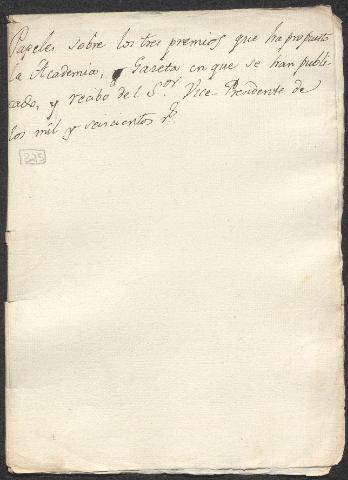 Papeles sobre los tres premios que ha propuesto
la Academia, y Gazeta en que se han publi-
cado, y recibo del S.or Vice-Presidente de
los mil y seiscientos r.s
325